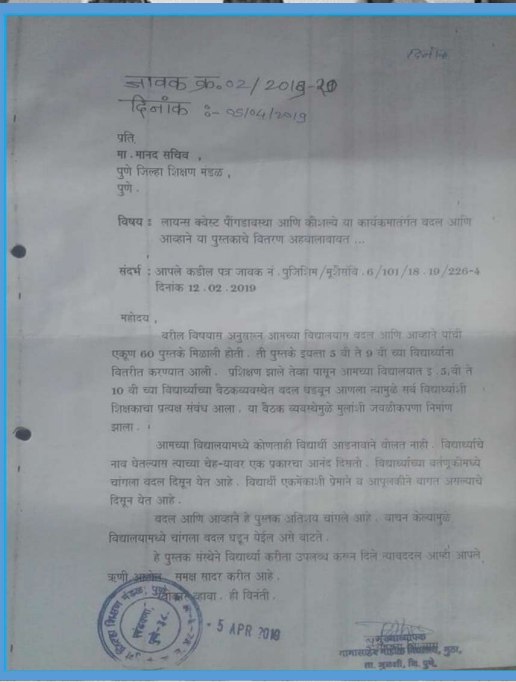 दिनांक
जावक क्र. 02/2019-20
दिनांक :- 05/04/2019
प्रति,
मा. मानद सचिव ,
पुणे जिल्हा शिक्षण मंडळ ,
पुणे .
विषय : लायन्स क्वेस्ट पौंगडावस्था आणि कौशल्ये या कार्यक्रमातंर्गत बदल आणि
आव्हाने या पुस्तकाचे वितरण अहवालाबाबत ...
संदर्भ : आपले कडील पत्र जावक नं . पुजिशिम / मूशैसवि . 6/101/18 . 19/226-4
दिनांक 12 . 02 . 2019
महोदय ,
वरील विषयास अनुसरून आमच्या विद्यालयास बदल आणि आव्हाने यांची
एकूण 60 पुस्तके मिळाली होती . ती पुस्तके इयत्ता 5 वी ते 9 वी च्या विद्यार्थ्यांना
वितरीत करण्यात आली . प्रशिक्षण झाले तेव्हा पासून आमच्या विद्यालयात इ . 5 वी ते
10 वी च्या विद्यार्थ्यांच्या बैठकव्यवस्थेत बदल घडवून आणला त्यामुळे सर्व विद्यार्थ्यांशी
शिक्षकाचा प्रत्यक्ष संबंध आला . या बैठक व्यवस्थेमुळे मुलांशी जवळीकपणा निर्माण
झाला .
आमच्या विद्यालयामध्ये कोणताही विद्यार्थी आडनावाने बोलत नाही . विद्यार्थ्यांचे
नाव घेतल्यास त्याच्या चेह-यावर एक प्रकारचा आनंद दिसतो . विद्यार्थ्यांच्या वर्तणूकीमध्ये
चांगला बदल दिसून येत आहे . विद्यार्थी एकमेकाशी प्रेमाने व आपुलकीने वागत असल्याचे
दिसून येत आहे .
बदल आणि आव्हाने हे पुस्तक अतिशय चांगले आहे . वाचन केल्यामुळे
विद्यालयामध्ये चांगला बदल घडून येईल असे वाटते .
हे पुस्तक संस्थेने विद्यार्थ्या करीता उपलब्ध करून दिले त्याबददल आम्ही आपले
ऋणी आहोत . समक्ष सादर करीत आहे .
स्वीकार व्हावा . ही विनंती .
- 5 APR 2019
मुख्याध्यापक
विद्यालय, मुठा,
ता. मुळशी, जि. पुणे.